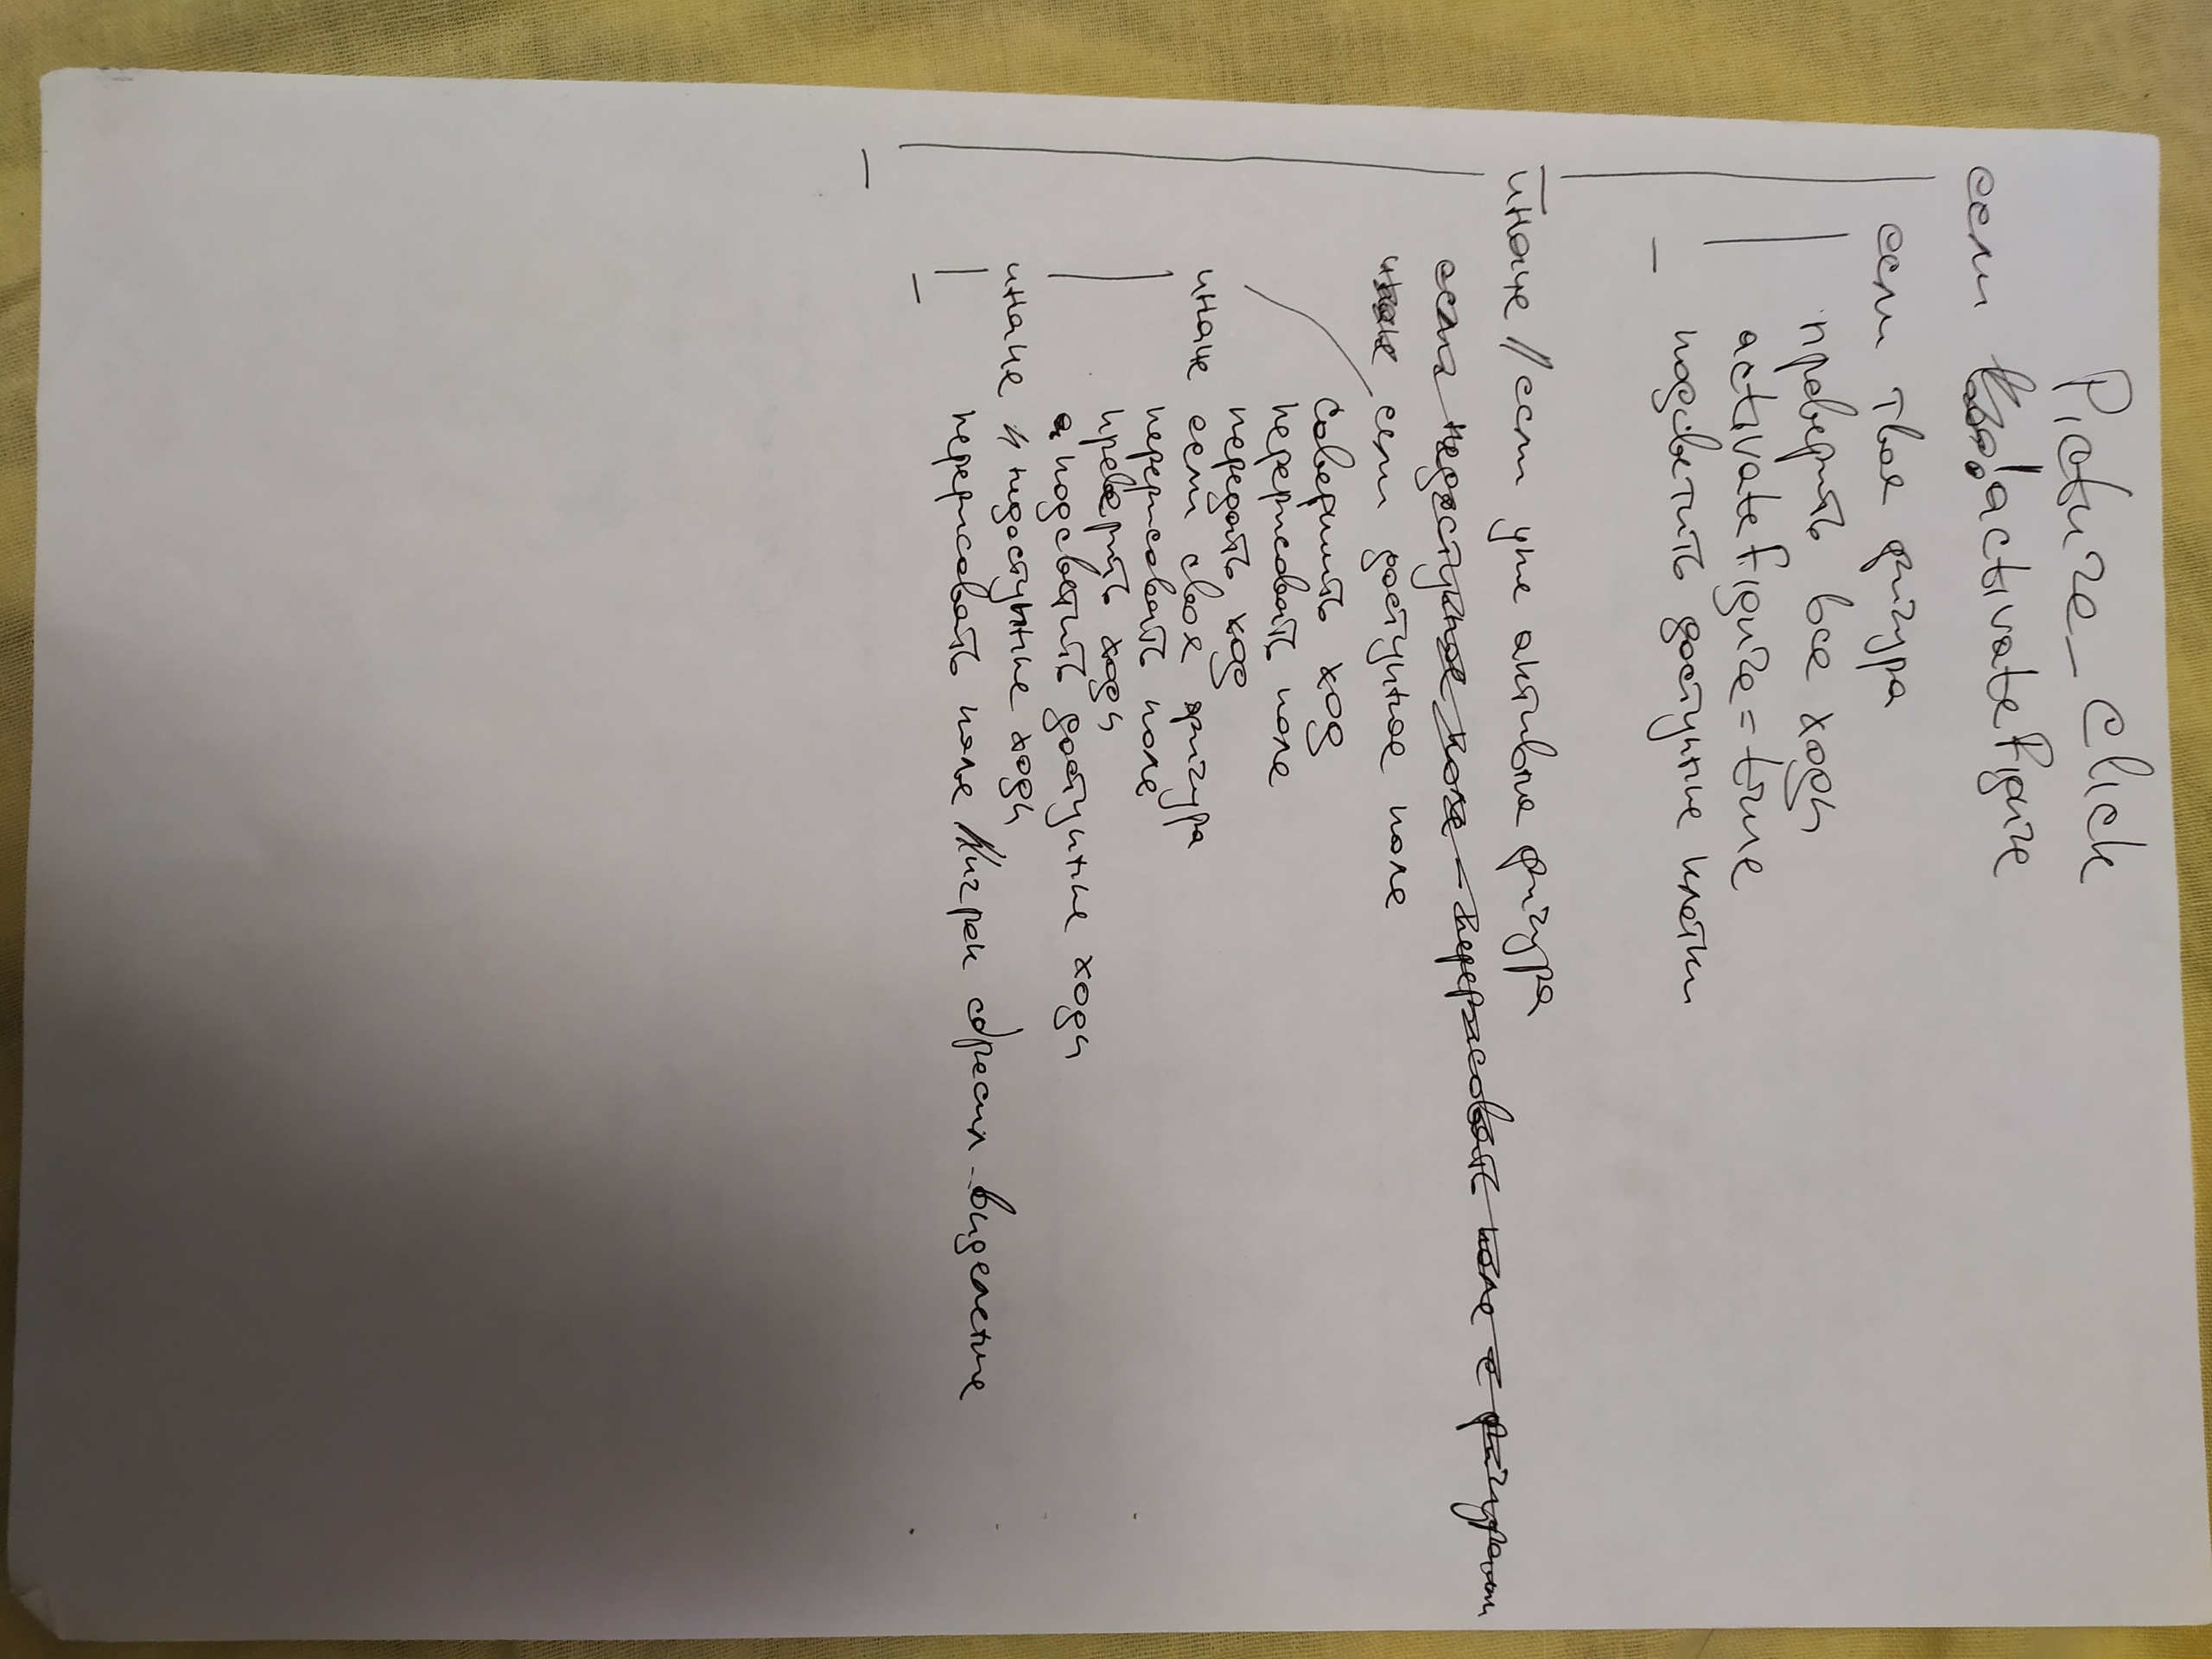 Picture_click
если !activateFigure
если твоя фигура
проверить все ходы
activateFigure = true
подсветить доступные клетки
иначе // если уже активна фигура
если недоступное поле – перерисовать поле с фигурами
иначе если доступное поле
совершить ход
перерисовать поле
передать ход
иначе если своя фигура
перерисовать поле
проверить ходы
подсветить доступные ходы
иначе // недоступные ходы
перерисовать поле // игрок сбросил выделение